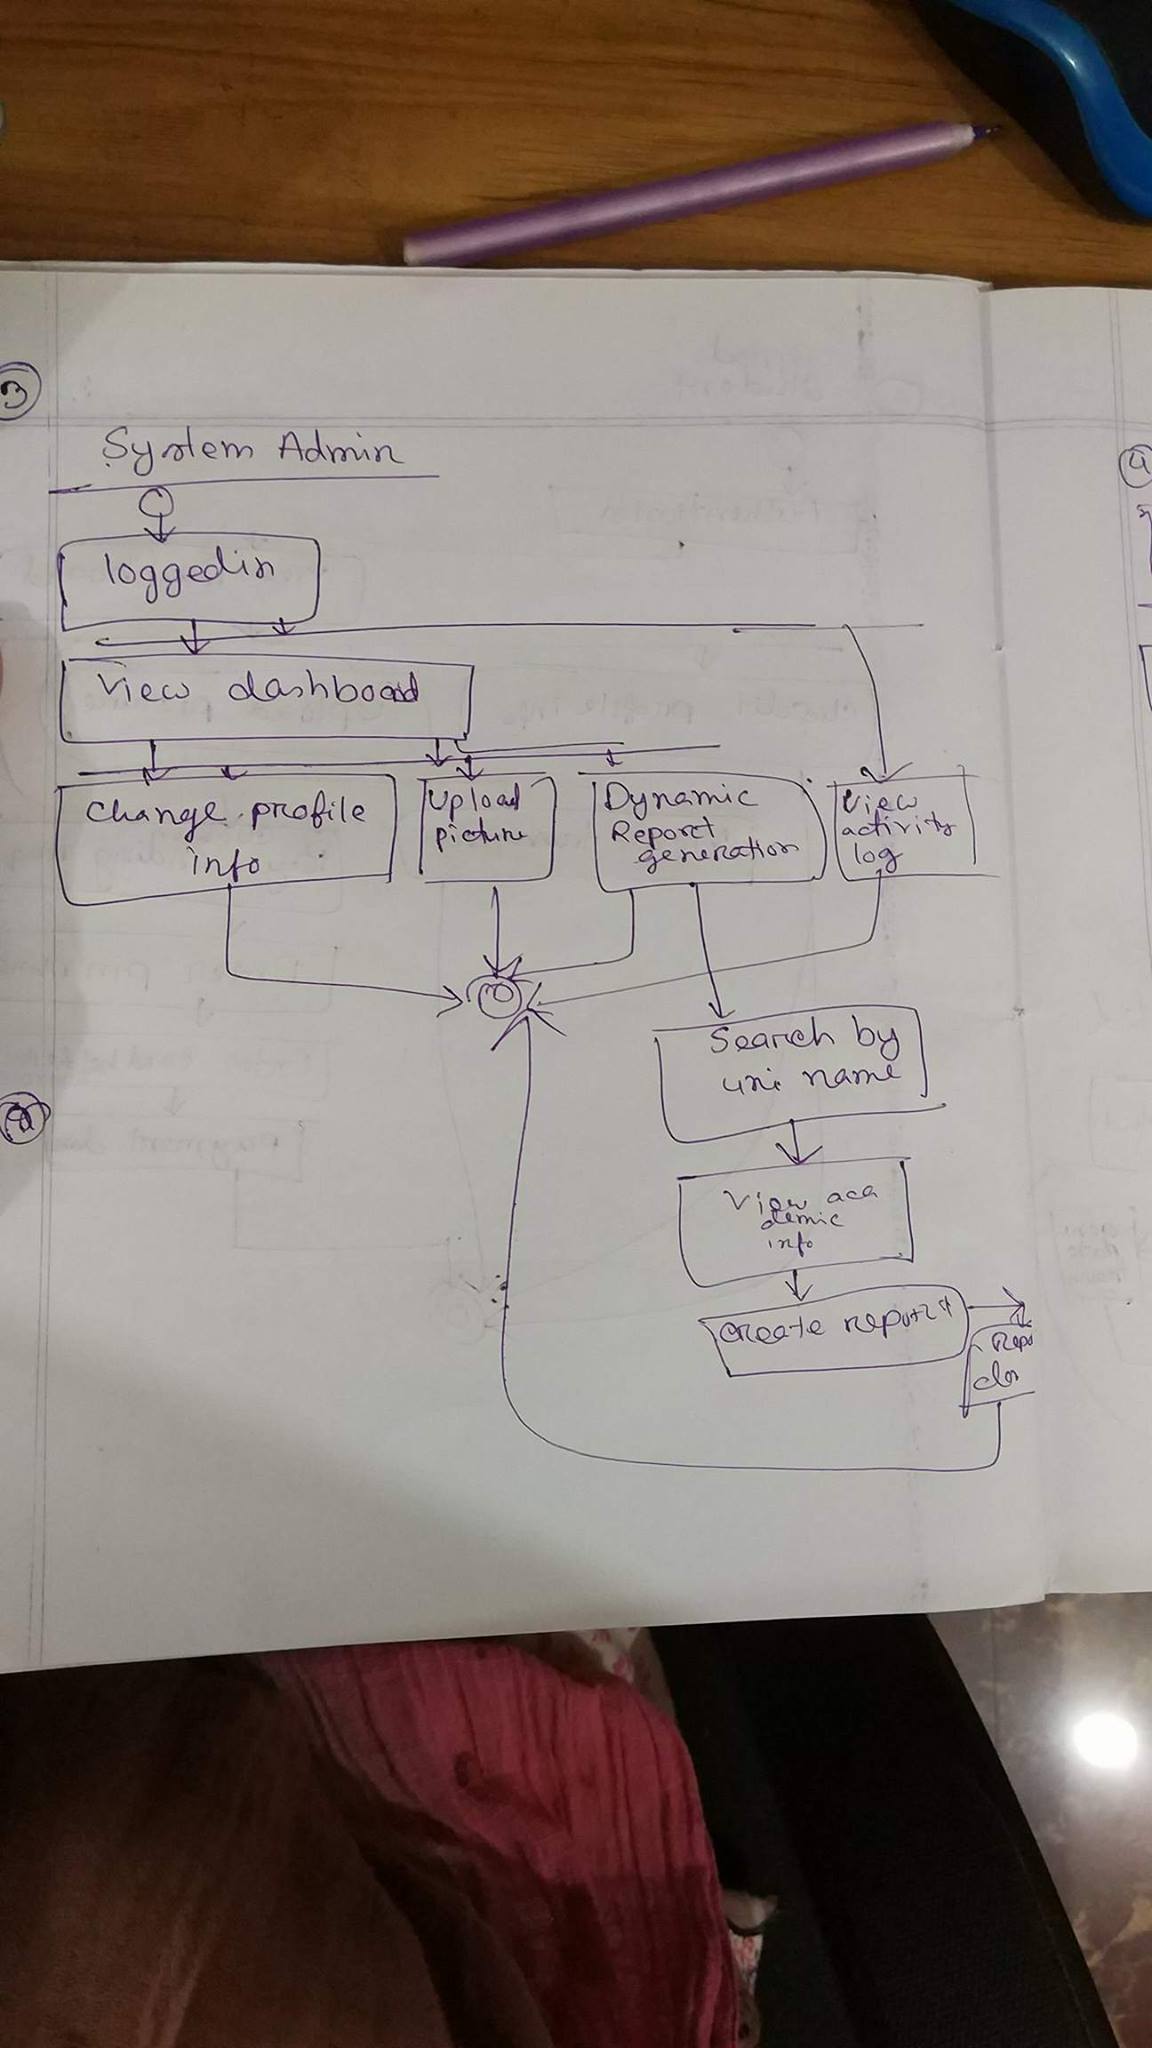 3
System Admin
loggedin
View dashboard
Change profile
info
Upload
picture
Dynamic
Report
generation
View
activity
log
Search by
uni name
View aca
demic
info
create report
Repo
4